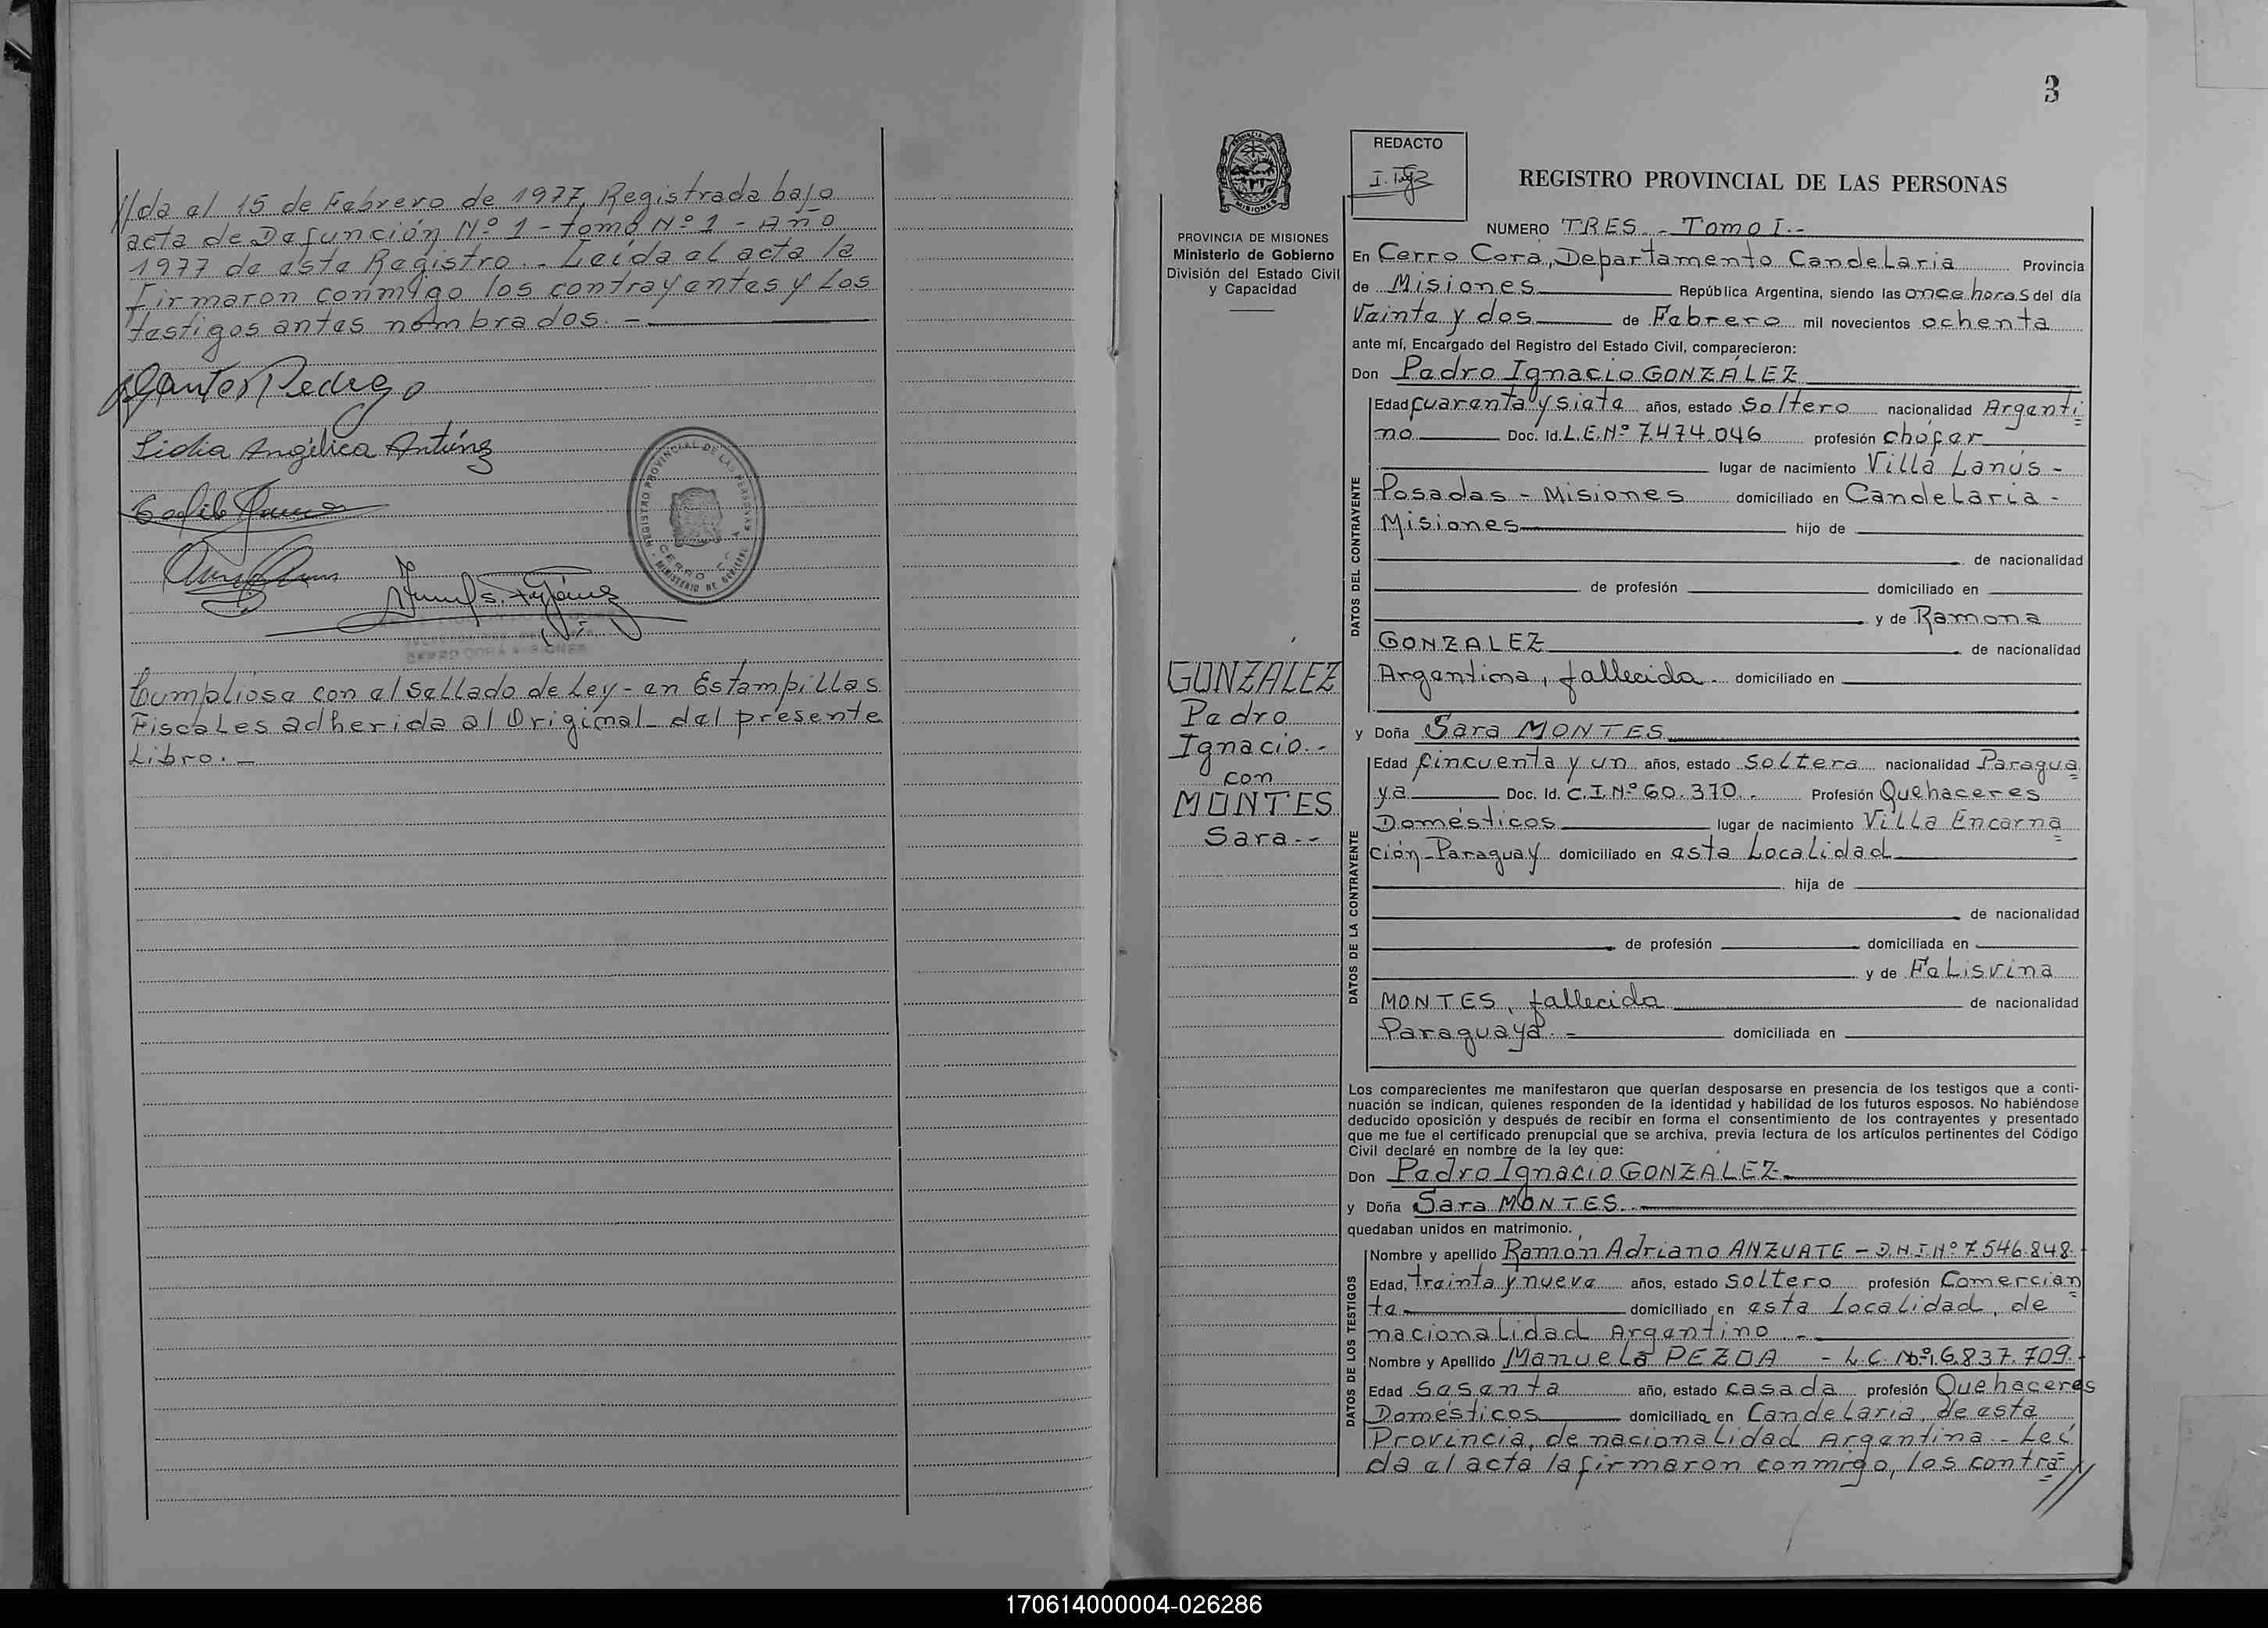 //da el 15 de Febrero de 1977, Registrada bajo
acta de Defunción Nº 1 - tomo Nº 1 - Año
1977 de este Registro.- Leída el acta la
firmaron conmigo los contrayentes y los
testigos antes nombrados. -
Santos Pedrego
Lidia Angélica Antúnez
REGISTRO PROVINCIAL DE LAS PERSONAS
CERRO
MINISTERIO DE GOBIERNO
CERRO CORA MISIONES
Cumpliose con el Sellado de Ley - en Estampillas
Fiscales adherida al Original del presente
Libro. -
3
PROVINCIA DE MISIONES
Ministerio de Gobierno
División del Estado Civil
y Capacidad
REDACTO
REGISTRO PROVINCIAL DE LAS PERSONAS
NUMERO TRES.- Tomo I.-
En Cerro Corá, Departamento Candelaria Provincia
de Misiones República Argentina, siendo las once horas del día
Veinte y dos de Febrero mil novecientos ochenta
ante mí, Encargado del Registro del Estado Civil, comparecieron:
Don Pedro Ignacio GONZALEZ
DATOS DEL CONTRAYENTE
Edad cuarenta y siete años, estado Soltero nacionalidad Argenti
no Doc. Id. L.E. Nº 7.474.046 profesión chófer
lugar de nacimiento Villa Lanús -
Posadas - Misiones domiciliado en Candelaria -
Misiones hijo de
de nacionalidad
de profesión domiciliado en
y de Ramona
GONZALEZ de nacionalidad
Argentina, fallecida - domiciliado en
GONZALEZ
Pedro
Ignacio.-
con
MONTES
Sara.--
y Doña Sara MONTES
DATOS DE LA CONTRAYENTE
Edad cincuenta y un años, estado Soltera nacionalidad Paragua
ya Doc. Id. C.I. Nº 60.370.- Profesión Quehaceres
Domésticos lugar de nacimiento Villa Encarna
ción - Paraguay domiciliado en esta Localidad
hija de
de nacionalidad
de profesión domiciliada en
y de Felisvina
MONTES, fallecida de nacionalidad
Paraguaya.- domiciliada en
Los comparecientes me manifestaron que querían desposarse en presencia de los testigos que a conti-
nuación se indican, quienes responden de la identidad y habilidad de los futuros esposos. No habiéndose
deducido oposición y después de recibir en forma el consentimiento de los contrayentes y presentado
que me fue el certificado prenupcial que se archiva, previa lectura de los artículos pertinentes del Código
Civil declaré en nombre de la ley que:
Don Pedro Ignacio GONZALEZ
y Doña Sara MONTES.-
quedaban unidos en matrimonio.
DATOS DE LOS TESTIGOS
Nombre y apellido Ramón Adriano ANZUATE - D.N.I. Nº 7.546.848.
Edad, treinta y nueve años, estado Soltero profesión Comercian
te domiciliado en esta Localidad, de
nacionalidad Argentino.-
Nombre y Apellido Manuela PEZOA - L.C. Nº 6.837.709.
Edad Sesenta año, estado casada profesión Quehaceres
Domésticos domiciliado en Candelaria, de esta
Provincia, de nacionalidad Argentina.- Leí
da el acta la firmaron conmigo, los contra//
170614000004-026286